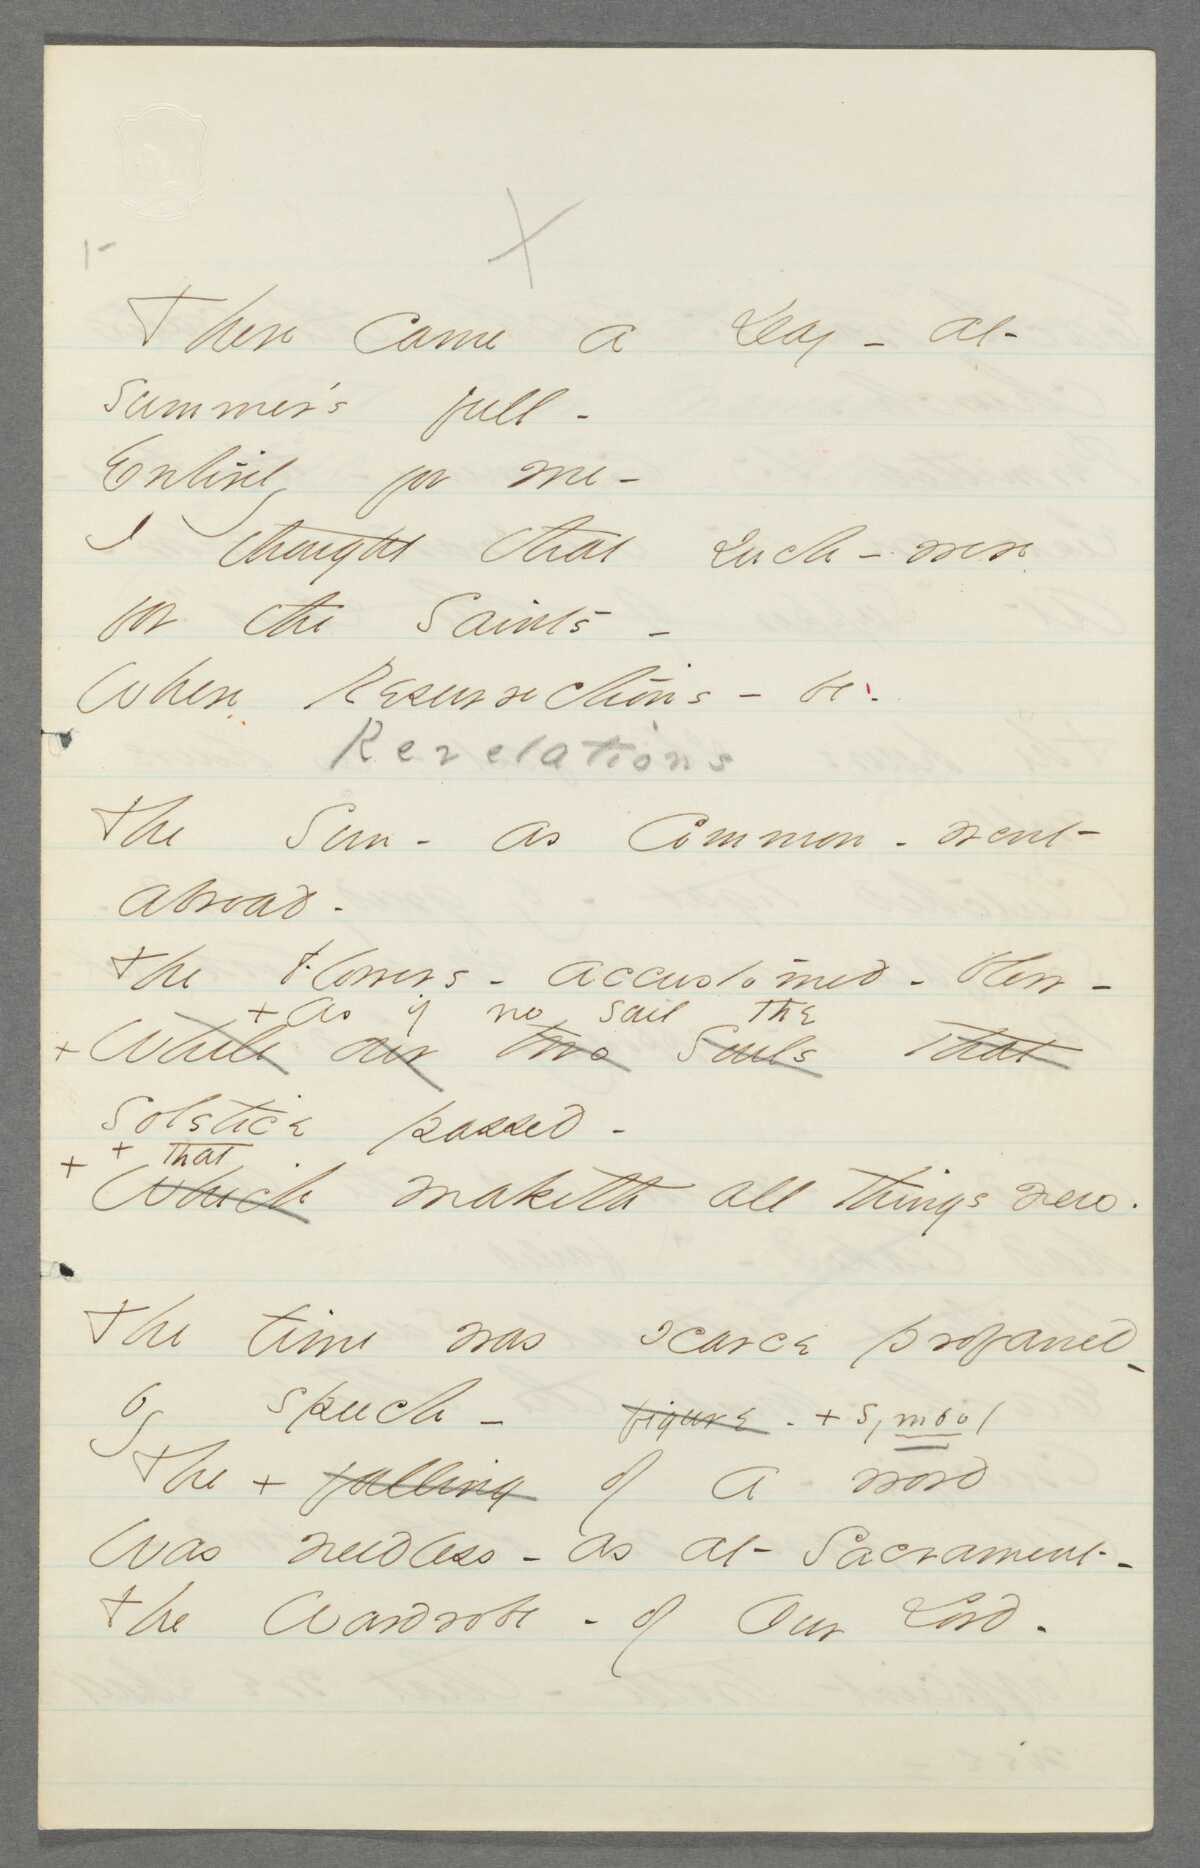 1-
X
There came a Day - at -
Summer's full -
Entirely for me -
I thought that such - were
for the Saints -
Where Resurrections - be -
Revelations
The Sun - as Common - went -
abroad -
The Flowers - accustomed - blew -
+ As if no sail the
+ While our two Souls that
Solstice passed -
+ + that
Which maketh all things new.
The time was scarce profaned -
by speech -
figure - + symbol
The + falling of a word
Was needless - as at - Sacrament -
The Wardrobe - of Our Lord -